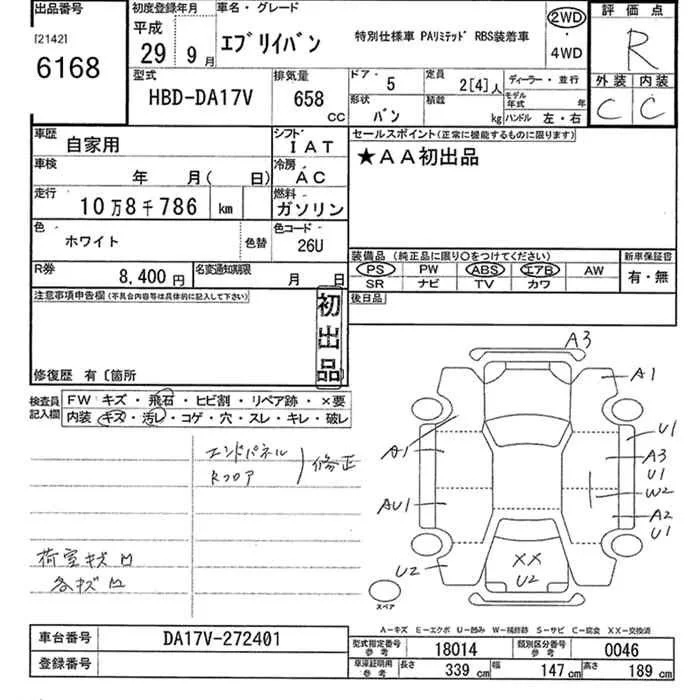 出品番号
[2142]
6168
初度登録年月
平成
29 9月
車名・グレード
エブリイバン
特別仕様車 PAリミテッド RBS装着車
2WD
・
4WD
評価点
R
外装 内装
C C
型式
HBD-DA17V
排気量
658
CC
ドア・
5
定員
2[4]人
ディーラー・並行
形状
バン
積載
kg
モデル年式 年
ハンドル 左・右
車歴
自家用
シフト
IAT
車検
年 月( 日)
冷房
AC
走行
10万8千786 km
燃料
ガソリン
色
ホワイト
色替
色コード
26U
R券
8,400円
名変通知期限
月 日
セールスポイント(正常に機能するものに限ります)
★AA初出品
装備品 (純正品に限り○をつけてください)
PS PW ABS エアB AW
SR ナビ TV カワ
新車保証書
有・無
後日品
注意事項申告欄(不具合内容等は具体的に記入して下さい)
初出品
修復歴 有〔箇所
検査員記入欄
FW キズ・飛石・ヒビ割・リペア跡・×要
内装 キズ・汚レ・コゲ・穴・スレ・キレ・破レ
エンドパネル
Rフロア
修正
荷室キズ凹
各キズ凹
A3
A1
U1
A1
A3
U1
W2
AU1
A2
U1
U2
XX
U2
スペア
A-キズ E-エクボ U-凹み W-補修跡 S-サビ C-腐食 XX-交換済
車台番号
DA17V-272401
登録番号
型式指定番号
参考
18014
類別区分番号
参考
0046
車庫証明用
参考
長さ 339cm
幅 147cm
高さ 189cm